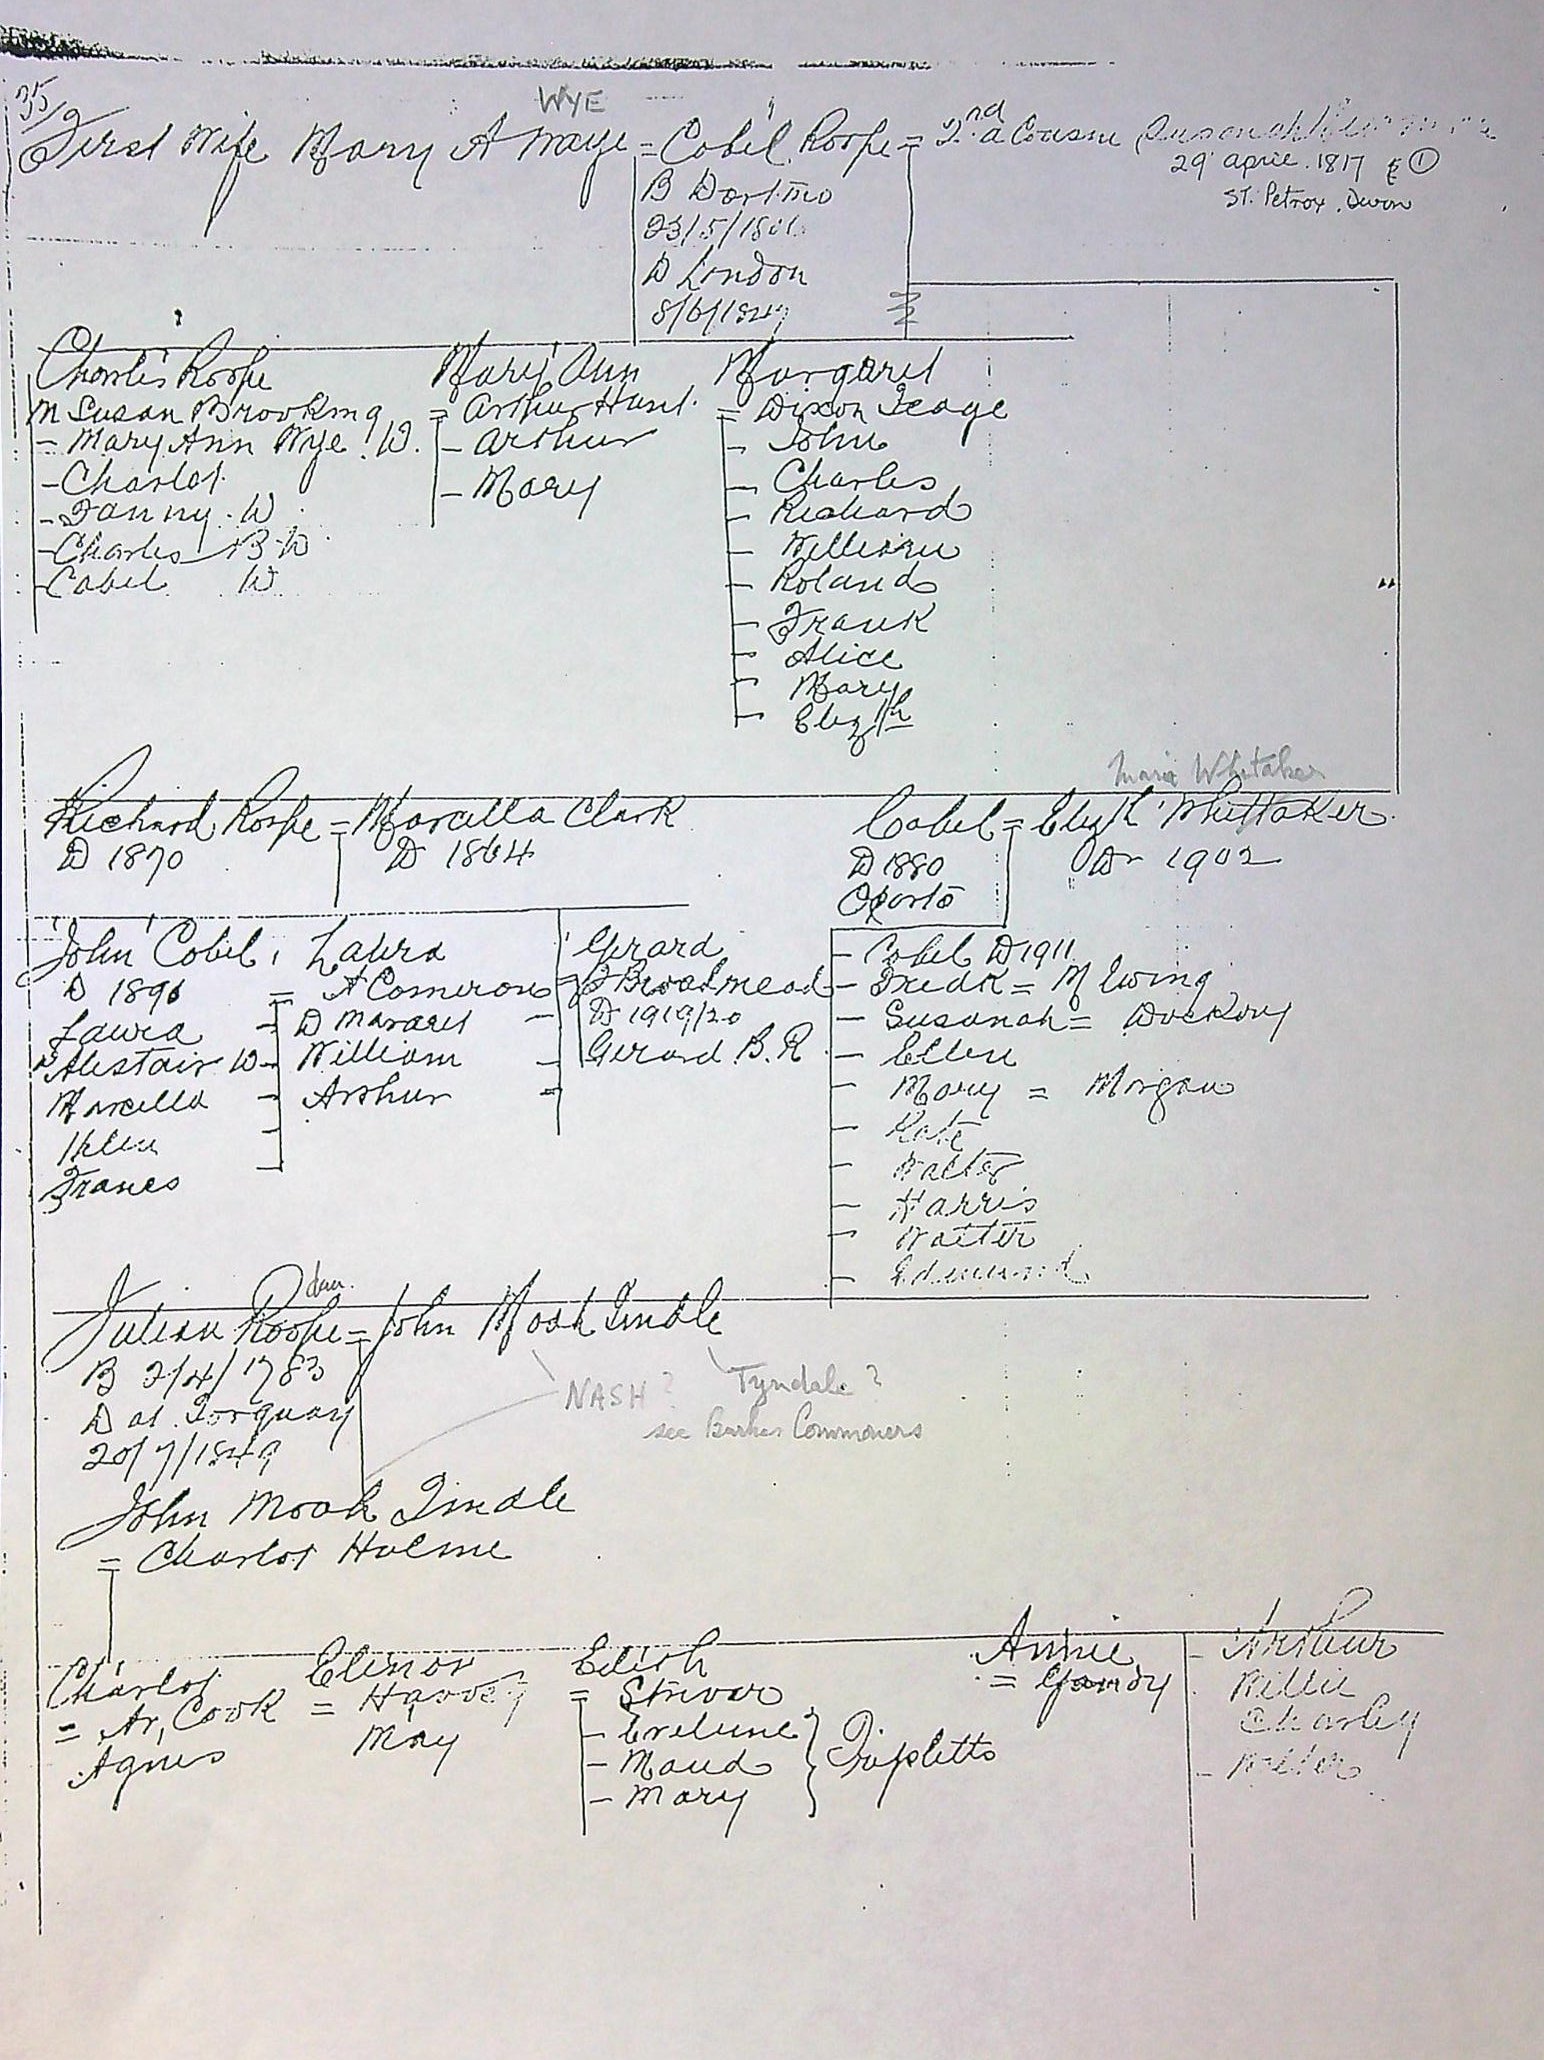 35/2
WYE
First Wife Mary A Waye = Cobel Roope = 2nd a Cousine
29 april. 1817 ①
ST. Petrox. Devon
B Dartmo
23/5/180
D London
8/6/1847
Charles Roope
Mary Ann
Margaret
m Susan Brooking
= Arthur Hunt.
= Dixon Teage
- Mary Ann Wye. W.
- Arthur
- John
- Charlot
- Mary
- Charles
- Fanny. W
- Richard
- Charles B W
- William
- Cobel W
- Roland
- Frank
- Alice
- Mary
- Elizth
Maria Whitaker
Richard Roope = Marcella Clark
Cobel = Elizth Whittaker
D 1870
D 1864
D 1880
Dr 1902
Oporto
John Cobel
Laura
Gerard
- Cobel D 1911
D 1896
= A Cameron
= J Broadmead
- Fredk = M Ewing
Laura
- D Margret
D 1919/20
- Susanah = Dockery
Alestair W
- William
Gerard B. R
- Ellen
Marcella
- Arthur
- Mary = Morgan
Helen
- Kate
Frances
- Walter
- Harris
- Walter
- Edmund
dau.
Julian Roope = John Moah Tindle
B 2/4/1783
NASH?
Tyndale?
D at Torquay
see Burkes Commoners
20/7/1849
John Moah Tindle
= Charlot Hulme
Charlot
Elinor
Edith
Annie
- Arthur
= Ar, Cook
= Harvey
= Strivar
= Gandy
Willie
Agnes
May
- Eveline
Charley
- Maud
} Tripletts
- Mary